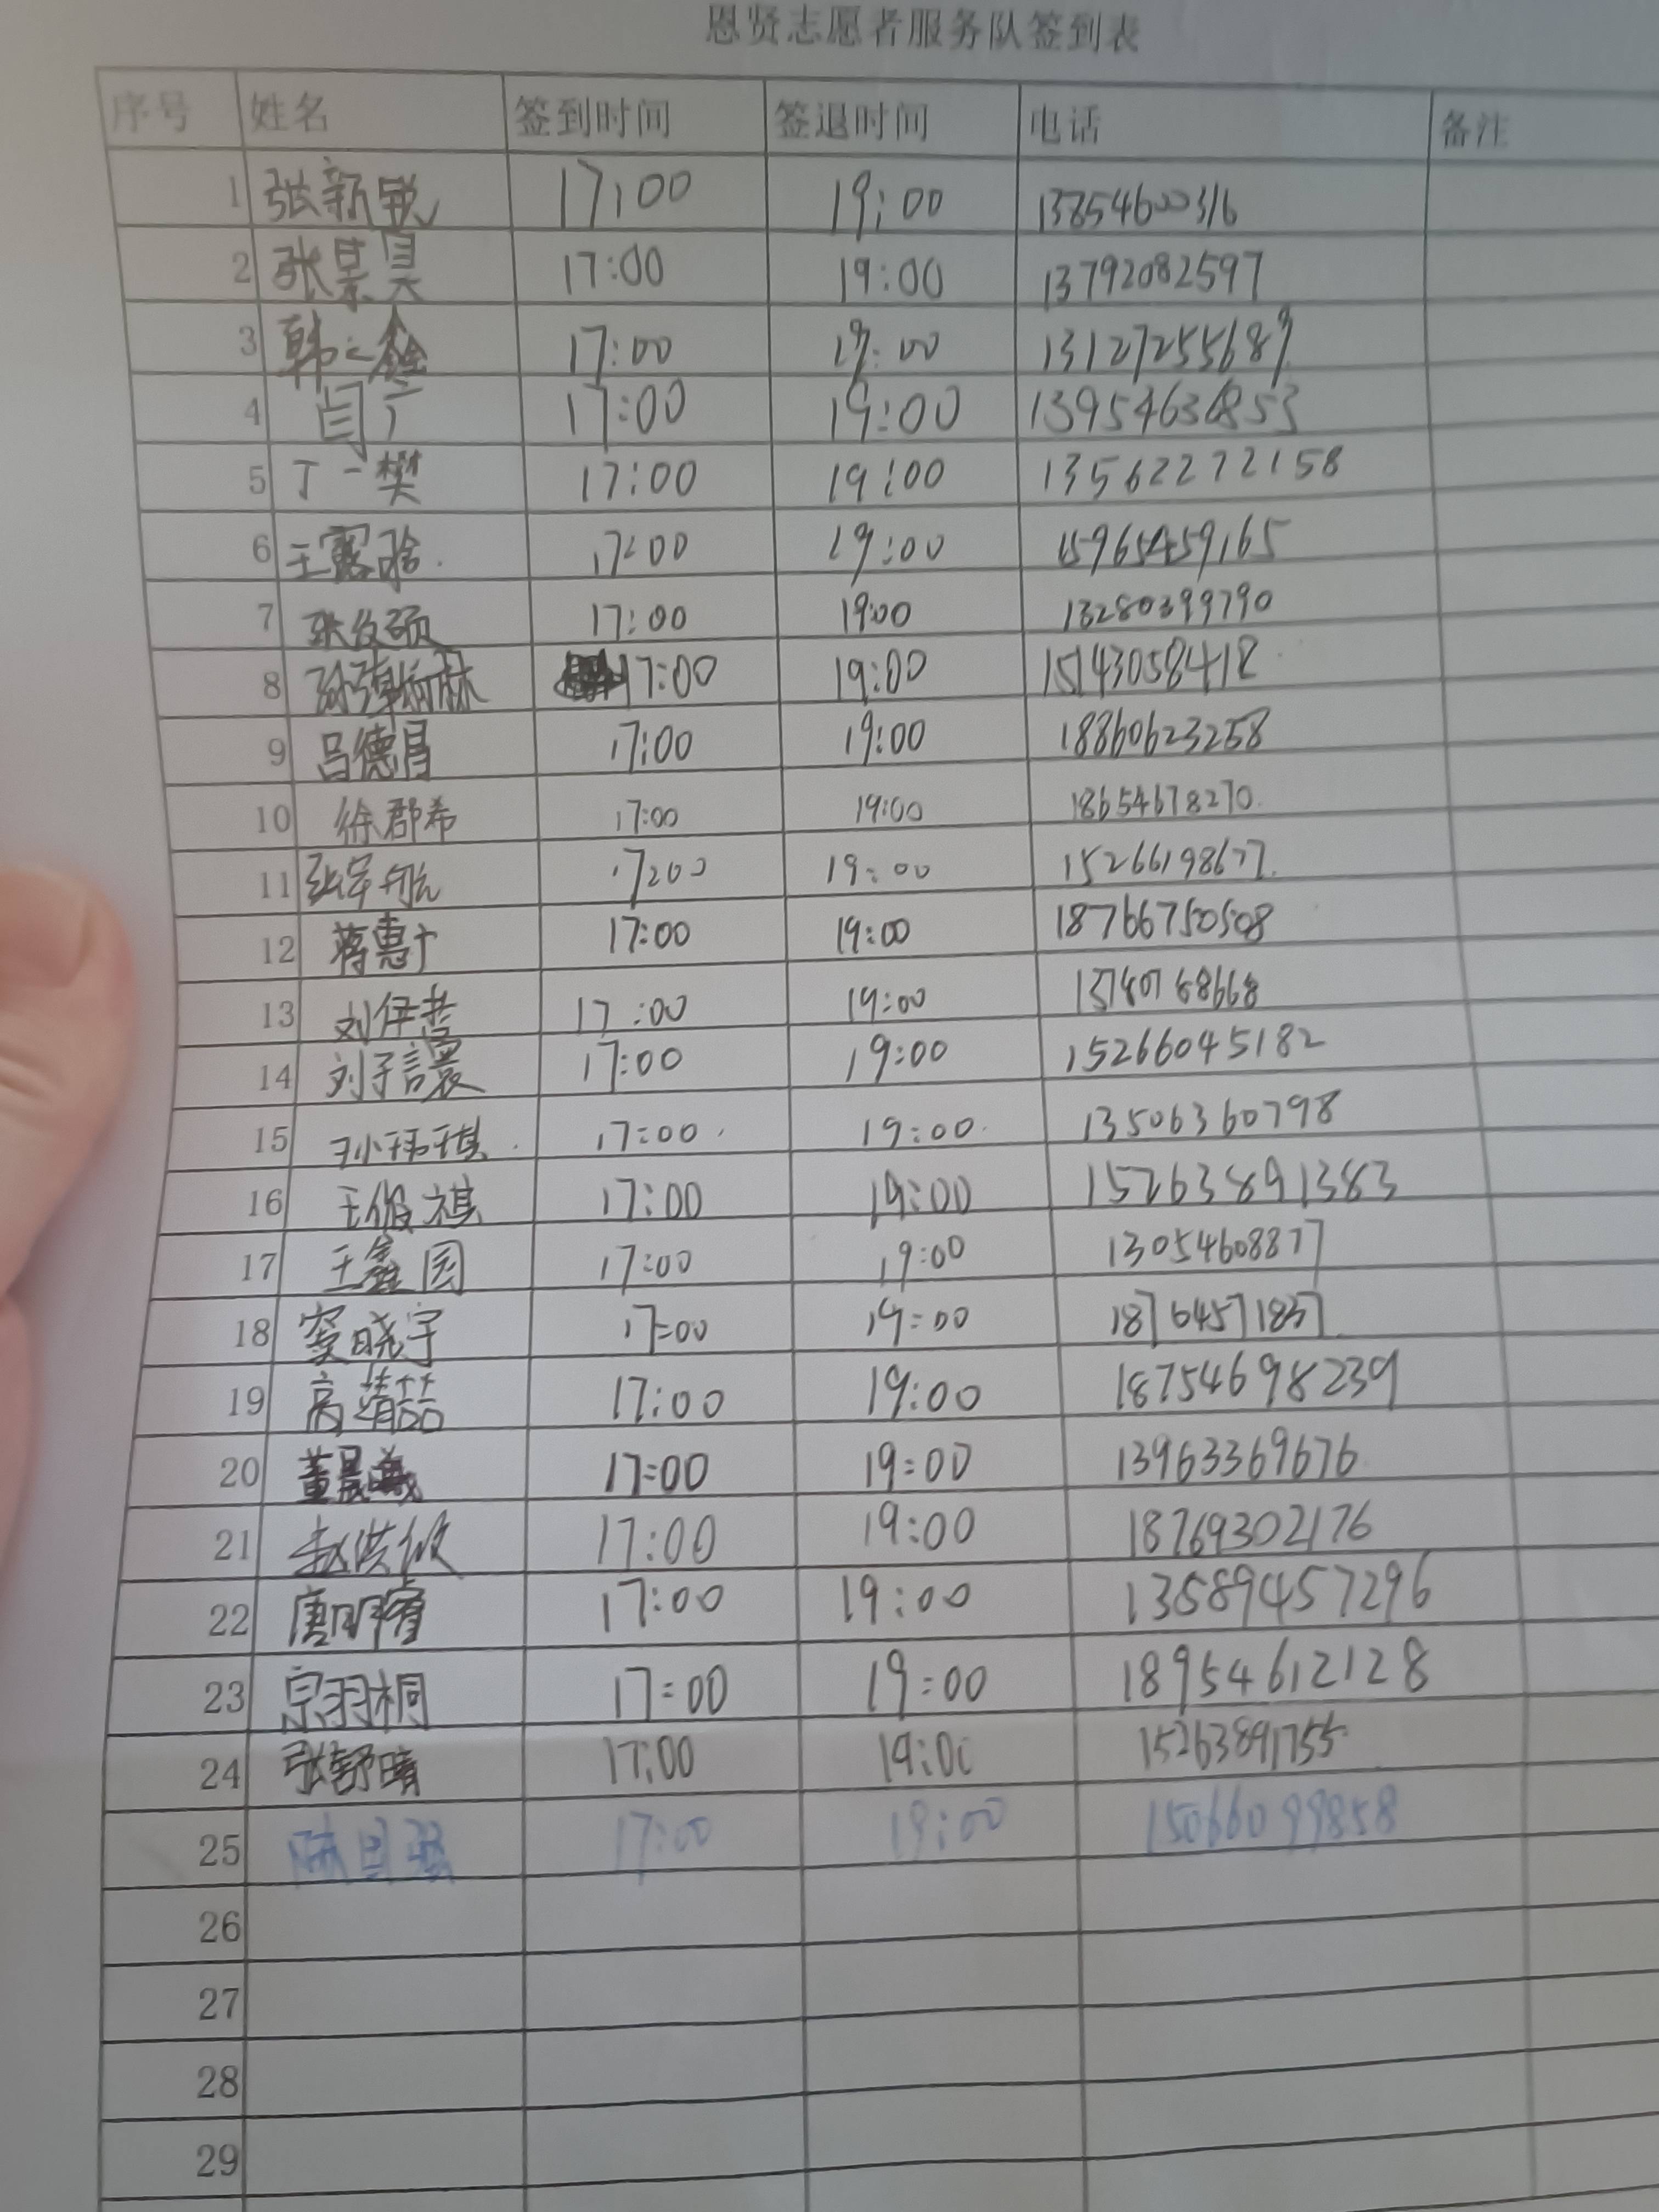 恩贤志愿者服务队签到表
序号 姓名 签到时间 签退时间 电话 备注
1 张新锐 17:00 19:00 13854600316
2 张景昊 17:00 19:00 13792082597
3 韩一鑫 17:00 19:00 13127255687
4 闫广 17:00 19:00
5 丁一樊 17:00 19:00 13562272158
6 王露晗 17:00 19:00 15965459165
7 17:00 19:00 13280399790
8 17:00 19:00 15143058412
9 吕德昌 17:00 19:00 18860623258
10 徐郡希 17:00 19:00 18654678270
11 17:00 19:00 15266198677
12 蒋惠 17:00 19:00 18766750508
13 刘伊 17:00 19:00
14 刘子 17:00 19:00 15266045182
15 孙玮琪 17:00 19:00 13506360798
16 王俊祺 17:00 19:00 152638891383
17 王鑫园 17:00 19:00 13054608877
18 窦晓宇 17:00 19:00 18764571837
19 高靖喆 17:00 19:00 18754698239
20 董晟 17:00 19:00 13963369676
21 赵洪俊 17:00 19:00 18769302176
22 唐明睿 17:00 19:00 13589457296
23 宗羽桐 17:00 19:00 18954612128
24 张舒晴 17:00 19:00 15263891755
25 陈国强 17:00 19:00 15066099858
26
27
28
29